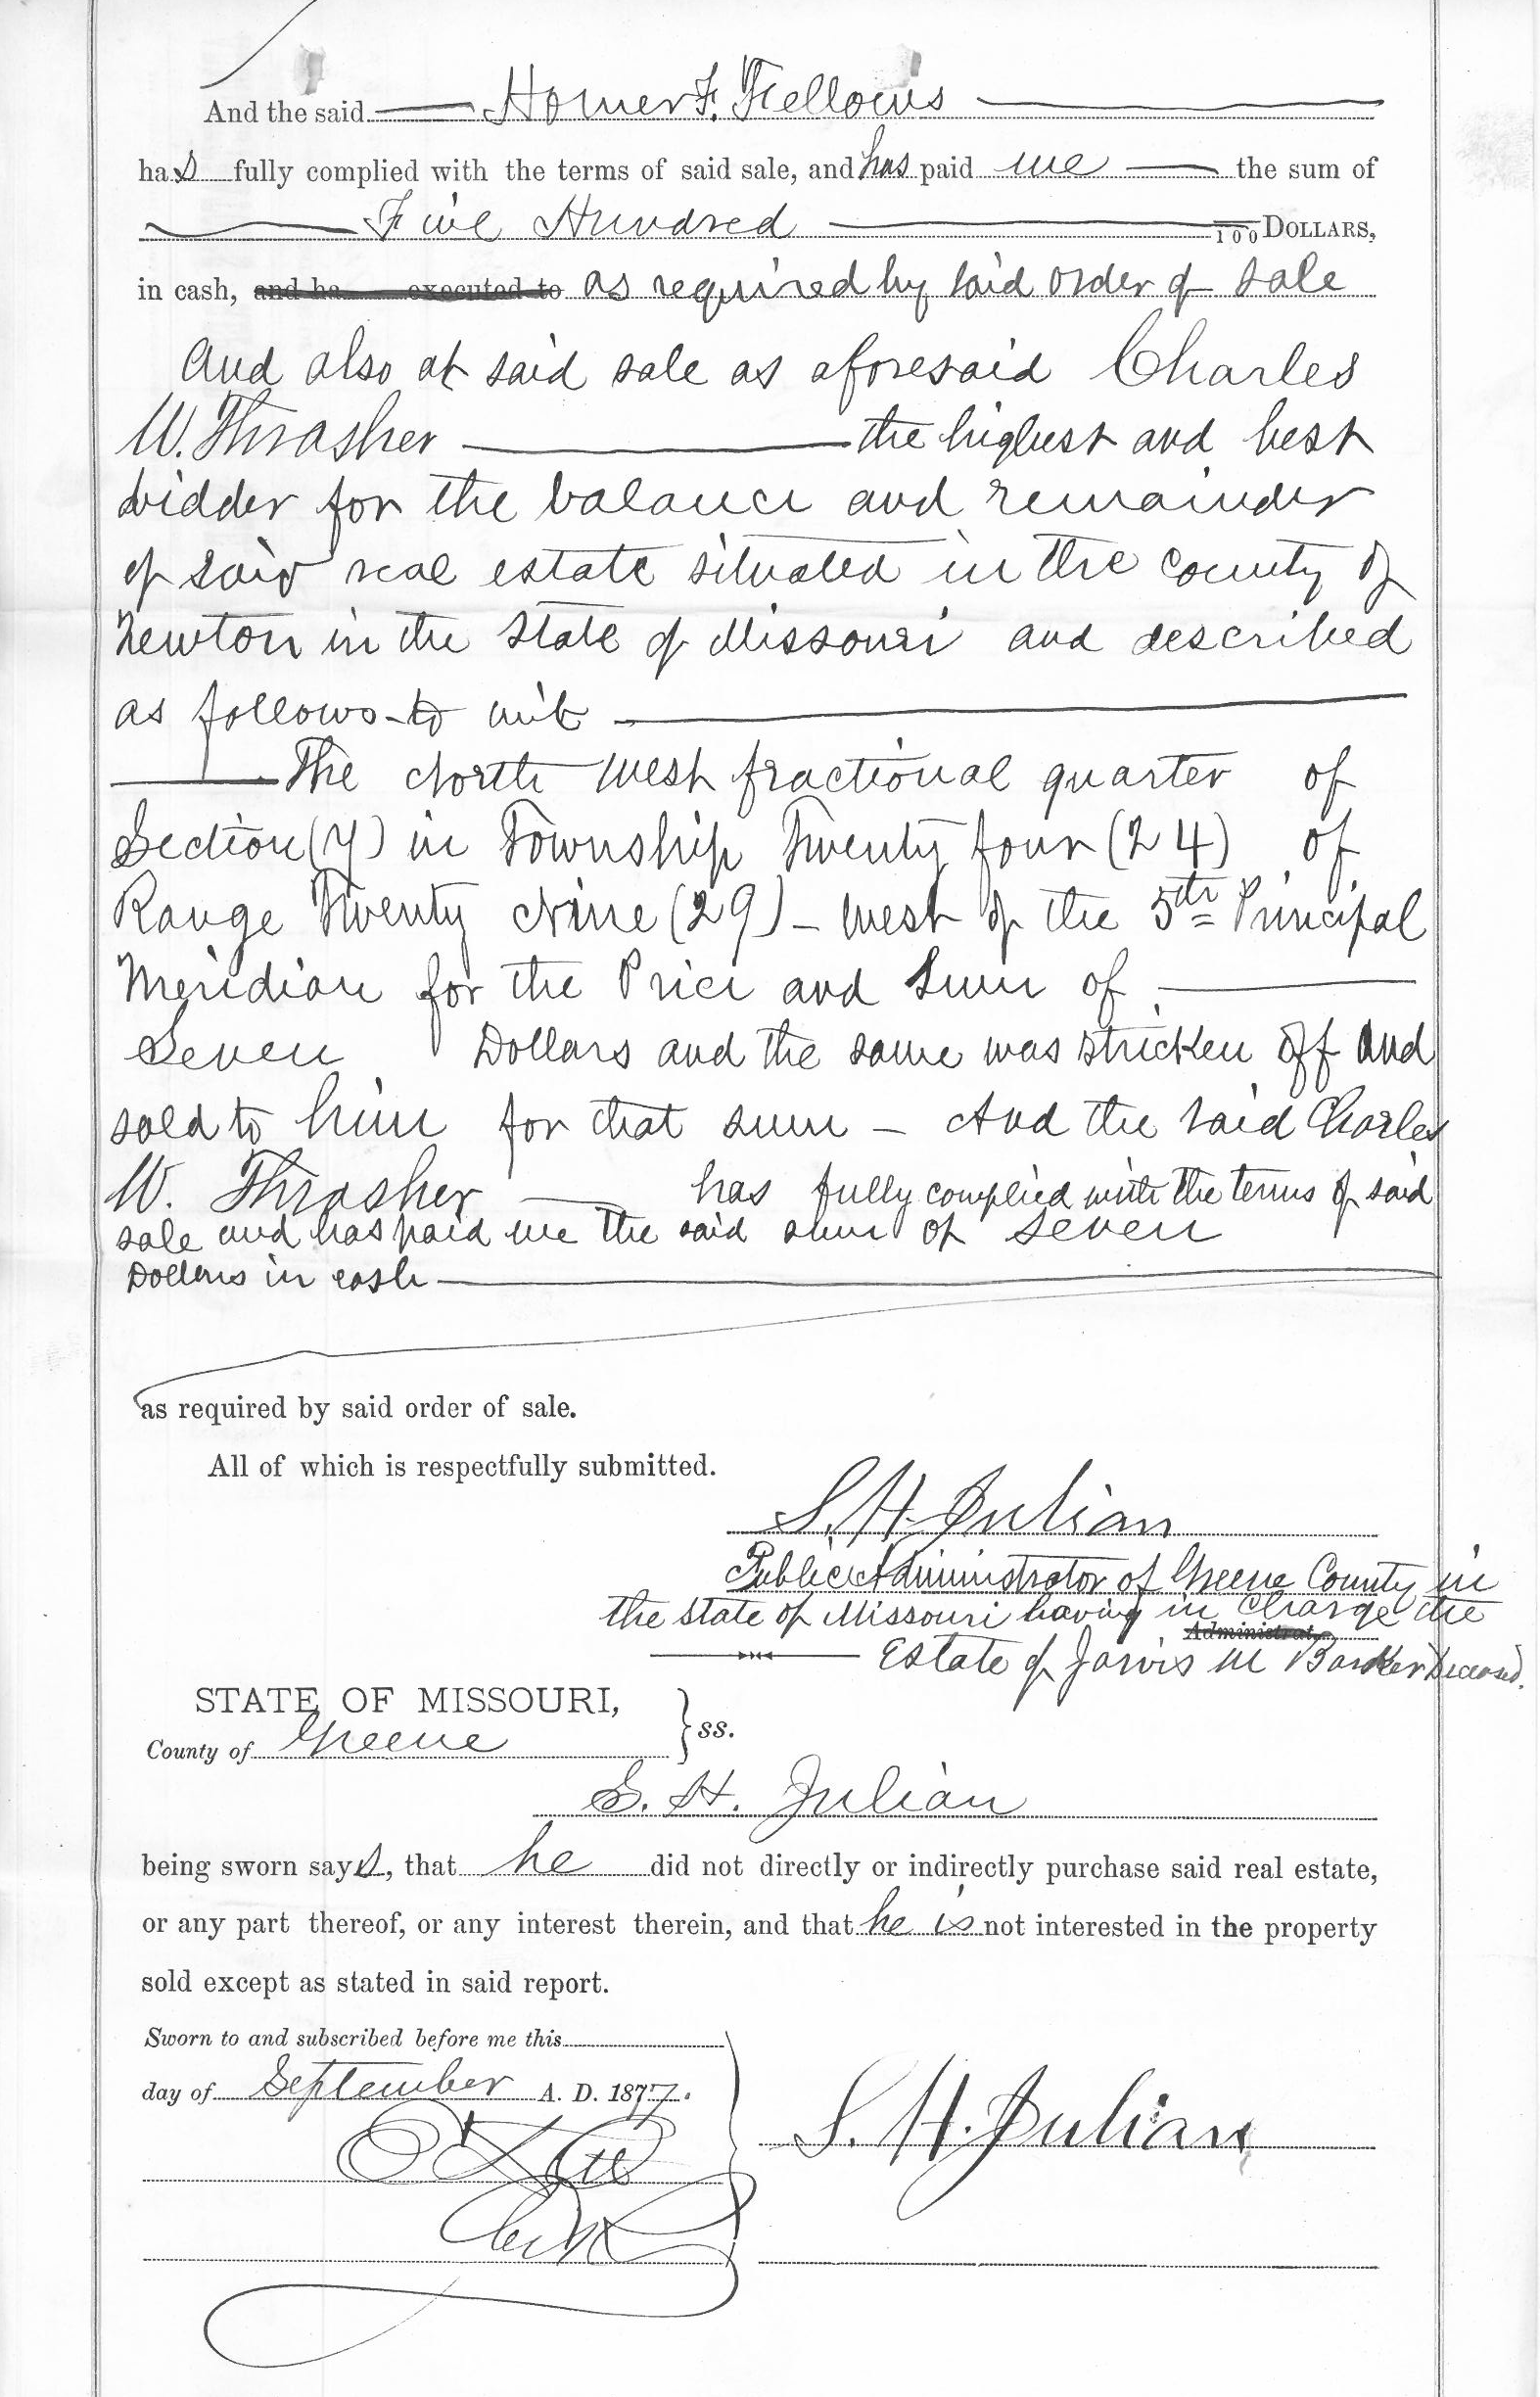 And the said Homer F. Fellows
has fully complied with the terms of said sale, and has paid me the sum of
Five Hundred 100 DOLLARS,
in cash, and ha executed to as required by said order of sale
And also at said sale as aforesaid Charles
W. Thrasher the highest and best
bidder for the balance and remainder
of said real estate situated in the county of
Newton in the State of Missouri and described
as follows to wit
The North West fractional quarter of
Section (7) in Township Twenty four (24) of
Range Twenty Nine (29) - West of the 5th Principal
Meridian for the Price and Sum of
Seven Dollars and the same was stricken off and
sold to him for that sum - And the said Charles
W. Thrasher has fully complied with the terms of said
sale and has paid me the said sum of Seven
Dollars in cash
as required by said order of sale.
All of which is respectfully submitted.
S. H. Julian
Public Administrator of Greene County in
the State of Missouri having in charge the
Administrat
Estate of Jarvis M Barker Deceased.
STATE OF MISSOURI,
County of Greene } ss.
S. H. Julian
being sworn says, that he did not directly or indirectly purchase said real estate,
or any part thereof, or any interest therein, and that he is not interested in the property
sold except as stated in said report.
Sworn to and subscribed before me this
day of September A. D. 1877.
S. H. Julian
Clk